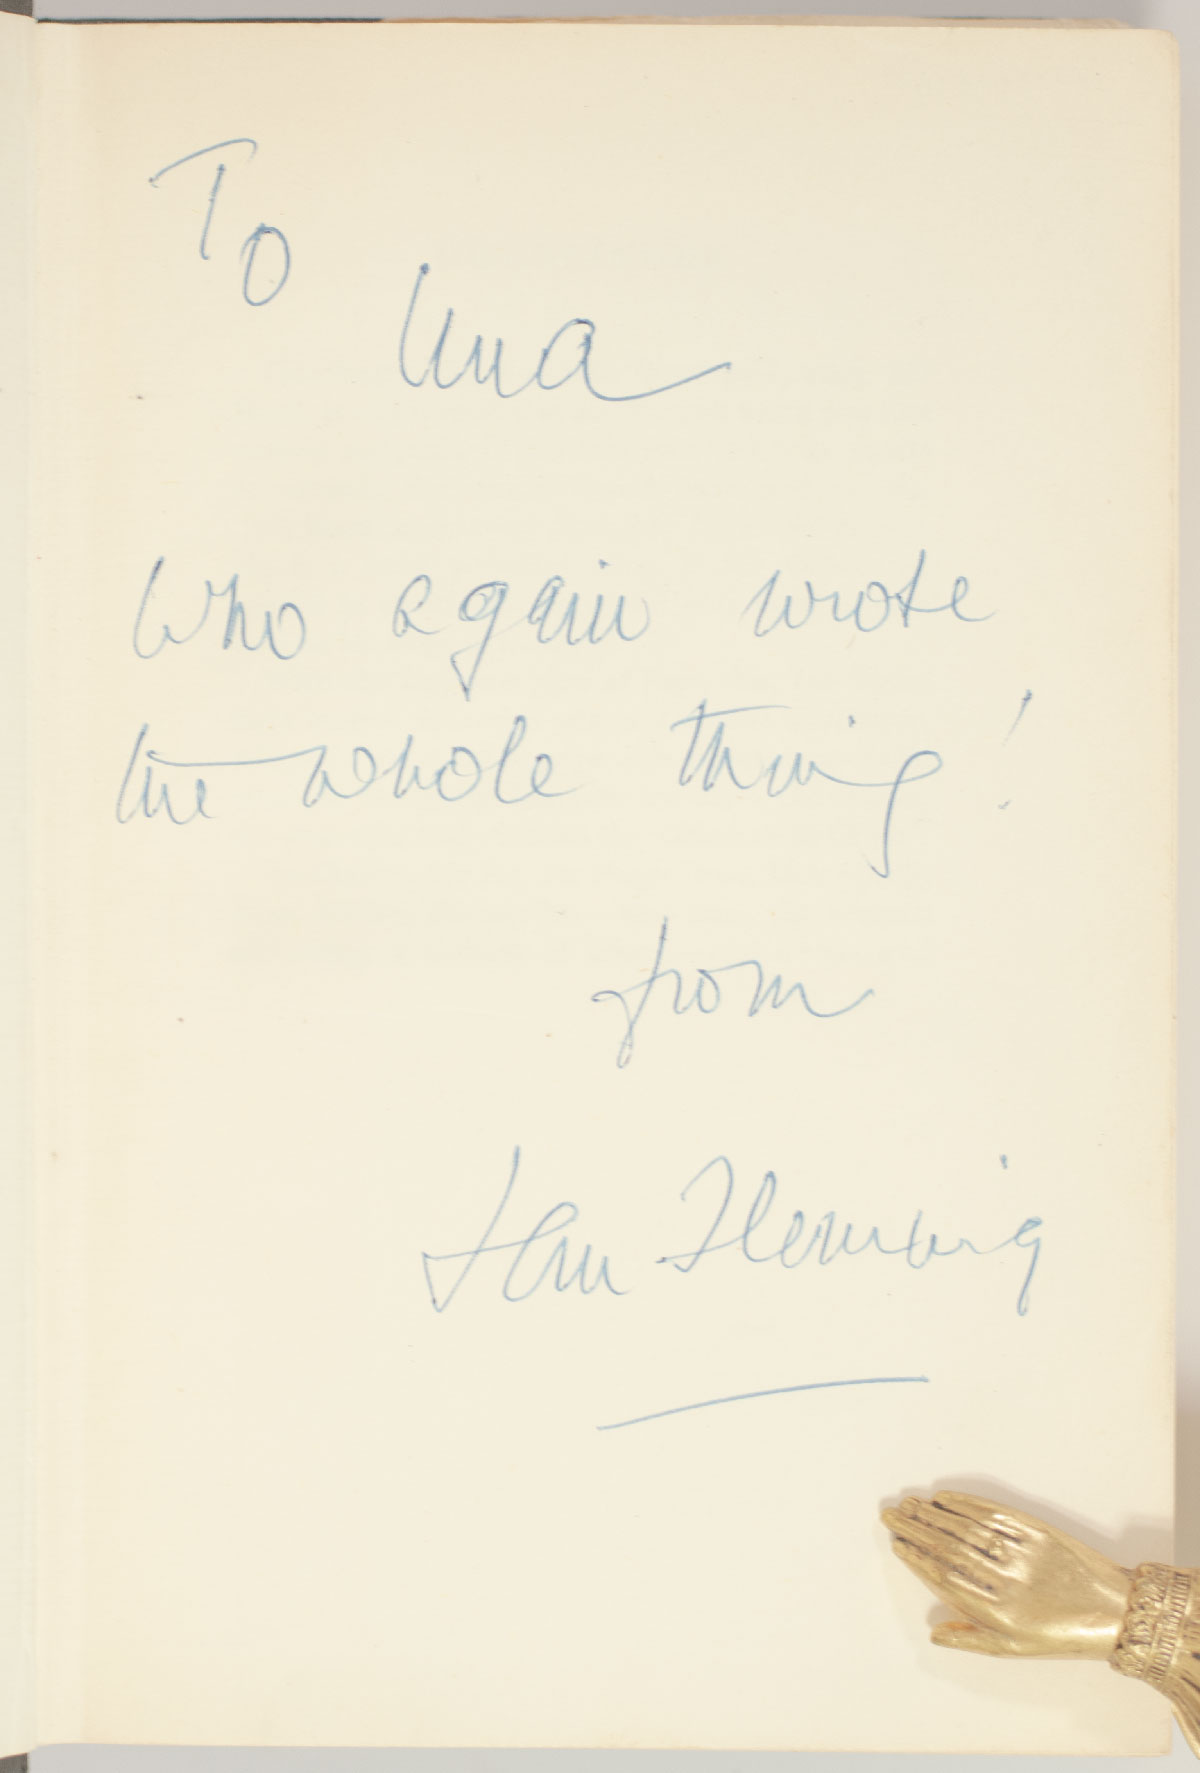 To
Una
Who again wrote
the whole thing!
from
Ian Fleming